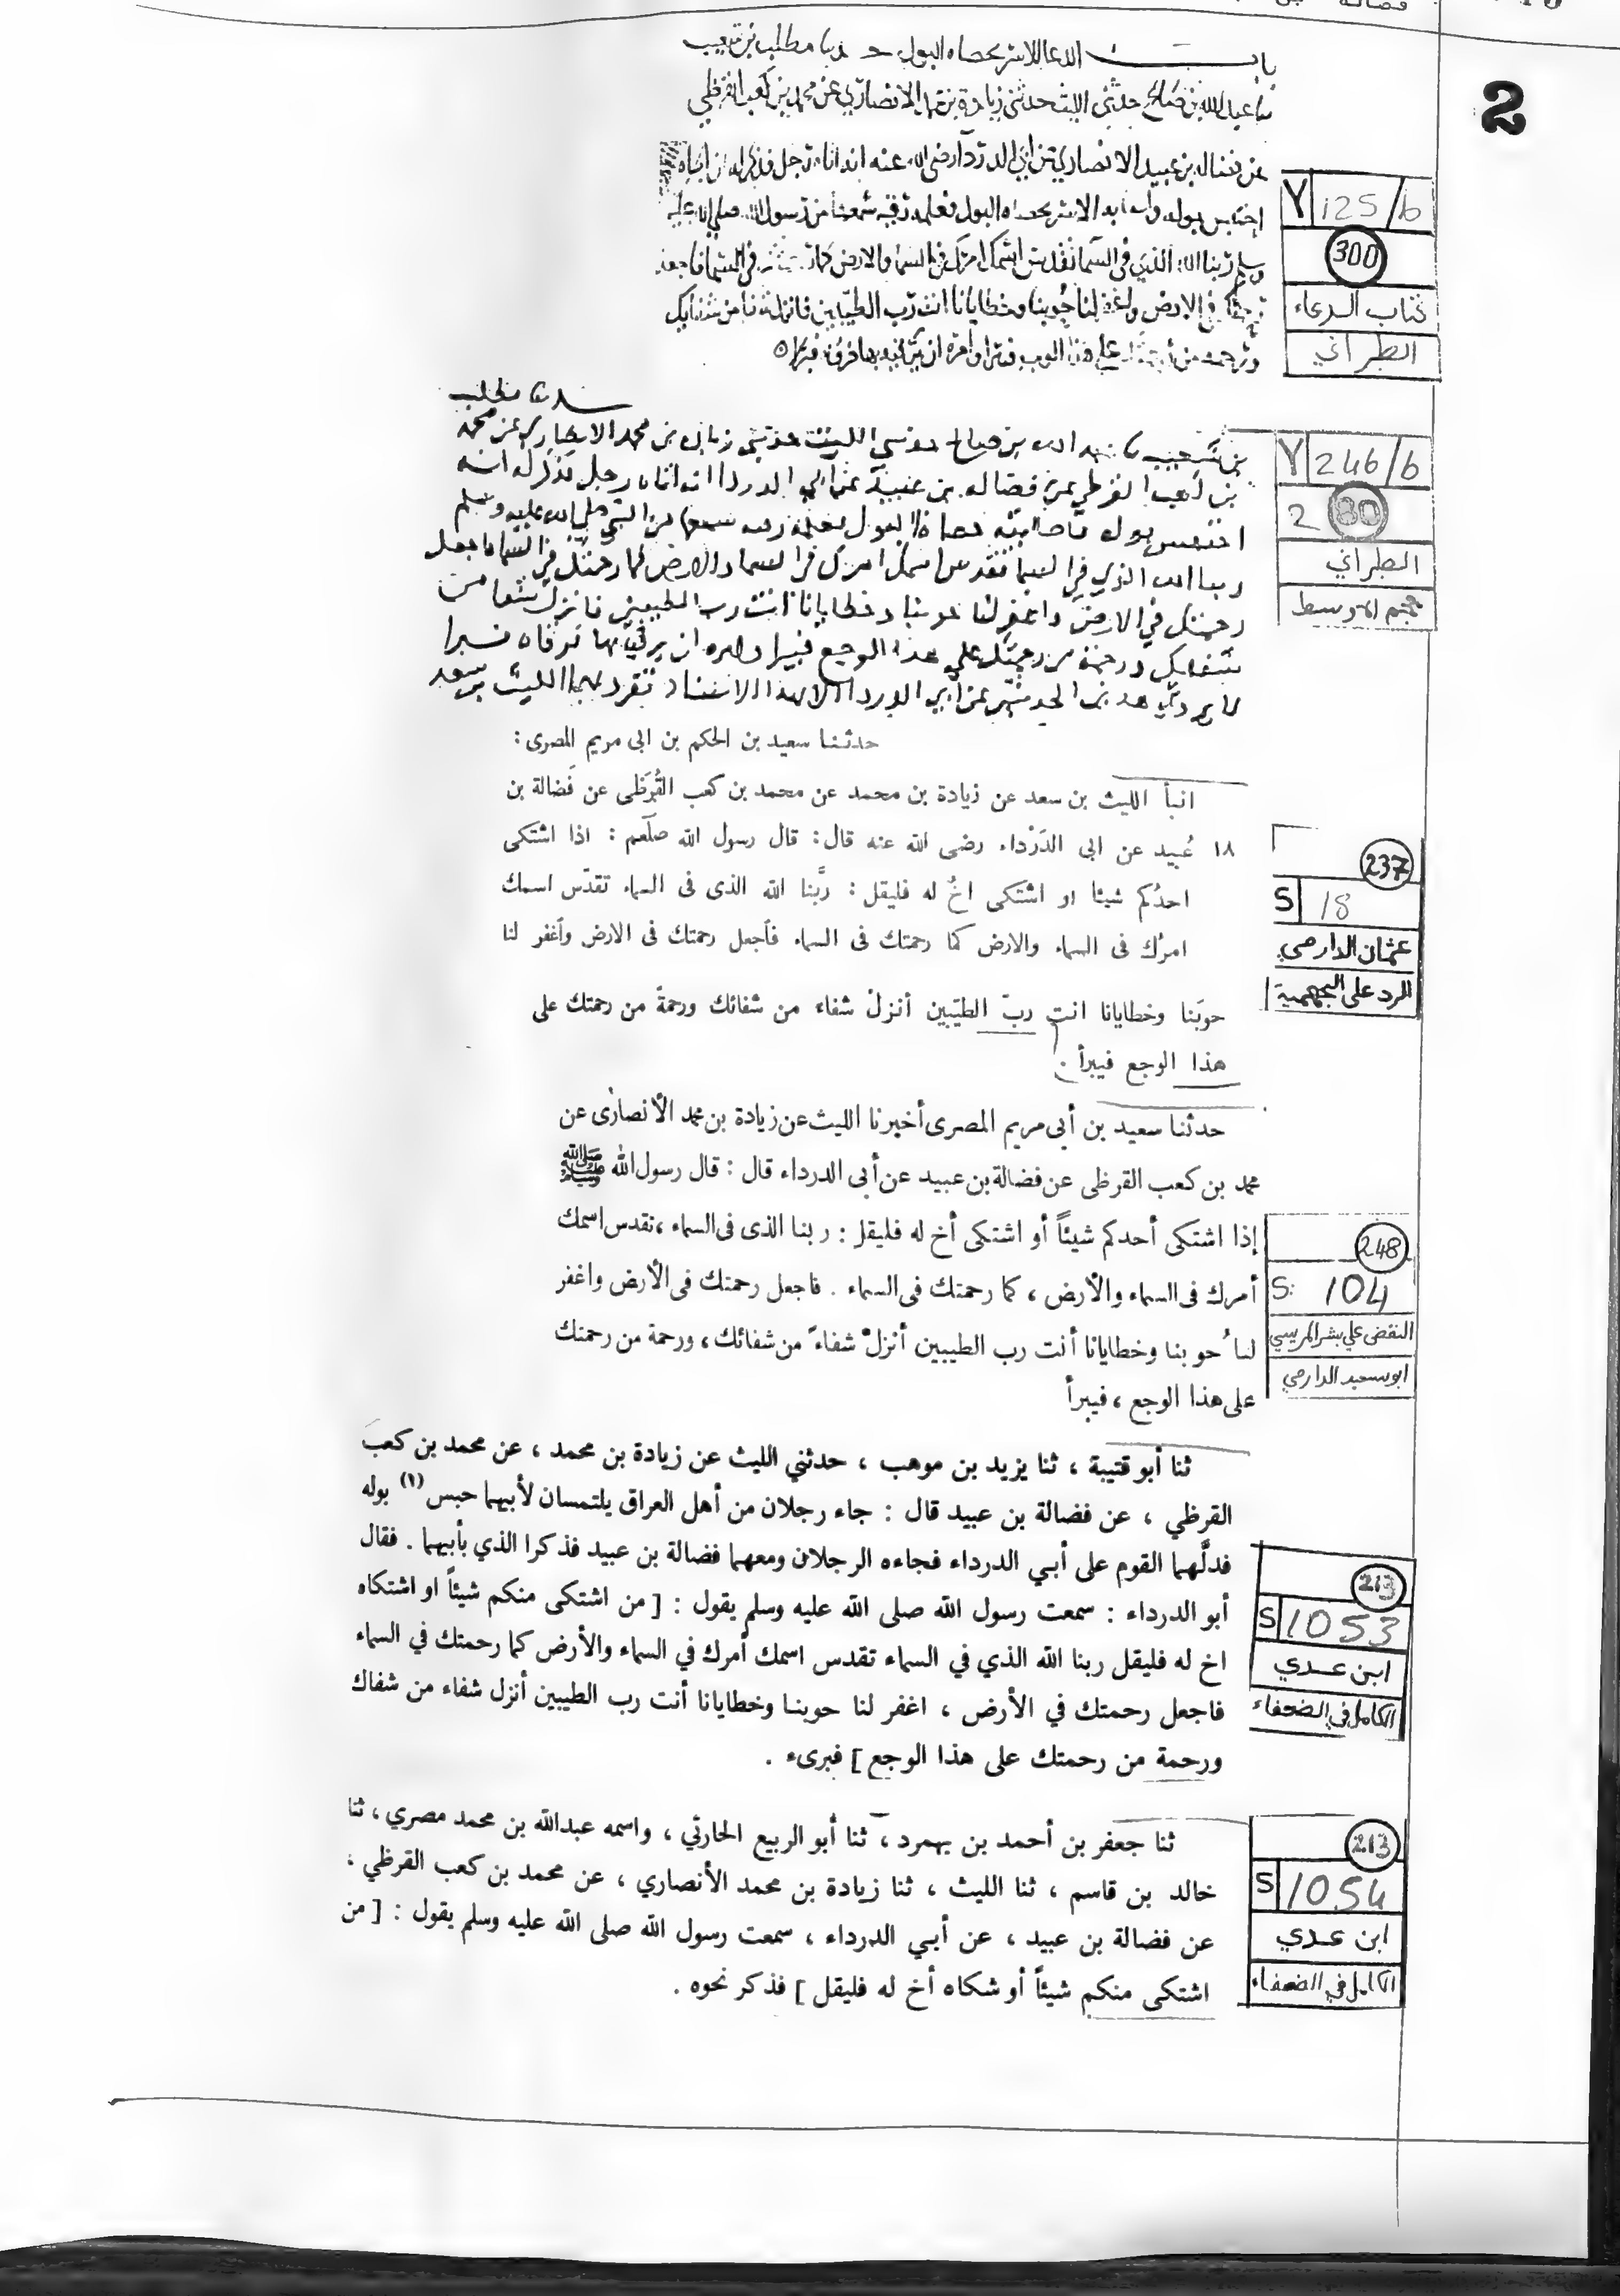 فضالة
2
باب الدعا للاسر بحصاه البول حدثنا مطلب بن شعيب
ثنا عبد الله بن صالح حدثني الليث حدثني زيادة بن محمد الانصاري عن محمد بن كعب القرظي
عن فضاله بن عبيد الانصاري عن ابي الدردآ رضي الله عنه انه اتاه رجل فذكر له ان اباه
احتبس بوله واصابه الاسر بحصاه البول فعلمه رقيه سمعها من رسول الله صلى الله عليه
وسلم ربنا الله الذي في السما تقدس اسمك امرك في السما والارض كما رحمتك في السما فاجعل
رحمتك في الارض واغفر لنا حوبنا وخطايانا انت رب الطيبين فانزل شفا من شفايك
ورحمه من رحمتك على هذا الوجع فيبرا وامره ان يرقيه بها فرقاه فبرا
Y 125/b
300
كتاب الدعاء
الطبراني
حدثنا مطلب
بن شعيب نا عبد الله بن صالح حدثني الليث حدثني زيادة بن محمد الانصاري عن محمد
بن كعب القرظي عن فضاله بن عبيد عن ابي الدردا انه اتاه رجل فذكر له انه
احتبس بوله فاصابته حصاة البول فعلمه رقيه سمعها من النبي صلى الله عليه وسلم
ربنا الله الذي في السما تقدس اسمك امرك في السما والارض كما رحمتك في السما فاجعل
رحمتك في الارض واغفر لنا حوبنا وخطايانا انت رب الطيبين فانزل شفا من
شفايك ورحمة من رحمتك على هذا الوجع فيبرا وامره ان يرقيه بها فرقاه فبرا
لا يروى هذا الحديث عن ابي الدردا الا بهذا الاسناد تفرد بهما الليث بن سعد
Y 246/b
2 80
الطبراني
معجم الاوسط
حدثنا سعيد بن الحكم بن ابى مريم المصرى :
انبأ الليث بن سعد عن زيادة بن محمد عن محمد بن كعب القُرَظى عن فَضالة بن
١٨ عُبيد عن ابى الدَرْداء رضى الله عنه قال: قال رسول الله صلّعم : اذا اشتكى
احدُكم شيئا او اشتكى اخٌ له فليقل : ربَّنا الله الذى فى السماء تقدّس اسمك
امرُك فى السماء والارض كما رحمتك فى السماء فأجعل رحمتك فى الارض وأغفر لنا
حوبَنا وخطايانا انت ربّ الطيّبين أنزلْ شفاء من شفائك ورحمةً من رحمتك على
هذا الوجع فيبرأ .
237
S 18
عثمان الدارمي
الرد على الجهمية
حدثنا سعيد بن أبى مريم المصرى أخبرنا الليث عن زيادة بن محمد الأنصارى عن
محمد بن كعب القرظى عن فضالة بن عبيد عن أبى الدرداء قال : قال رسول الله ﷺ
إذا اشتكى أحدكم شيئاً أو اشتكى أخ له فليقل : ربنا الذى فى السماء ، تقدس اسمك
أمرك فى السماء والأرض ، كما رحمتك فى السماء . فاجعل رحمتك فى الأرض واغفر
لنا حُوبنا وخطايانا أنت رب الطيبين أنزلْ شفاءً من شفائك ، ورحمة من رحمتك
على هذا الوجع ، فيبرأ
248
S: 104
النقض علي بشر المريسي
ابو سعيد الدارمي
ثنا أبو قتيبة ، ثنا يزيد بن موهب ، حدثني الليث عن زيادة بن محمد ، عن محمد بن كعب
القرظي ، عن فضالة بن عبيد قال : جاء رجلان من أهل العراق يلتمسان لأبيهما حبس (١) بوله
فدلَّهما القوم على أبي الدرداء فجاءه الرجلان ومعهما فضالة بن عبيد فذكرا الذي بأبيهما . فقال
أبو الدرداء : سمعت رسول الله صلى الله عليه وسلم يقول : [ من اشتكى منكم شيئاً او اشتكاه
اخ له فليقل ربنا الله الذي في السماء تقدس اسمك أمرك في السماء والأرض كما رحمتك في السماء
فاجعل رحمتك في الأرض ، اغفر لنا حوبنا وخطايانا أنت رب الطيبين أنزل شفاء من شفاك
ورحمة من رحمتك على هذا الوجع ] فبرىء .
213
S 1053
ابن عدي
الكامل في الضعفاء
ثنا جعفر بن أحمد بن بهمرد ، ثنا أبو الربيع الحارثي ، واسمه عبدالله بن محمد مصري ، ثنا
خالد بن قاسم ، ثنا الليث ، ثنا زيادة بن محمد الأنصاري ، عن محمد بن كعب القرظي ،
عن فضالة بن عبيد ، عن أبي الدرداء ، سمعت رسول الله صلى الله عليه وسلم يقول : [ من
اشتكى منكم شيئاً أو شكاه أخ له فليقل ] فذكر نحوه .
213
S 1054
ابن عدي
الكامل في الضعفاء